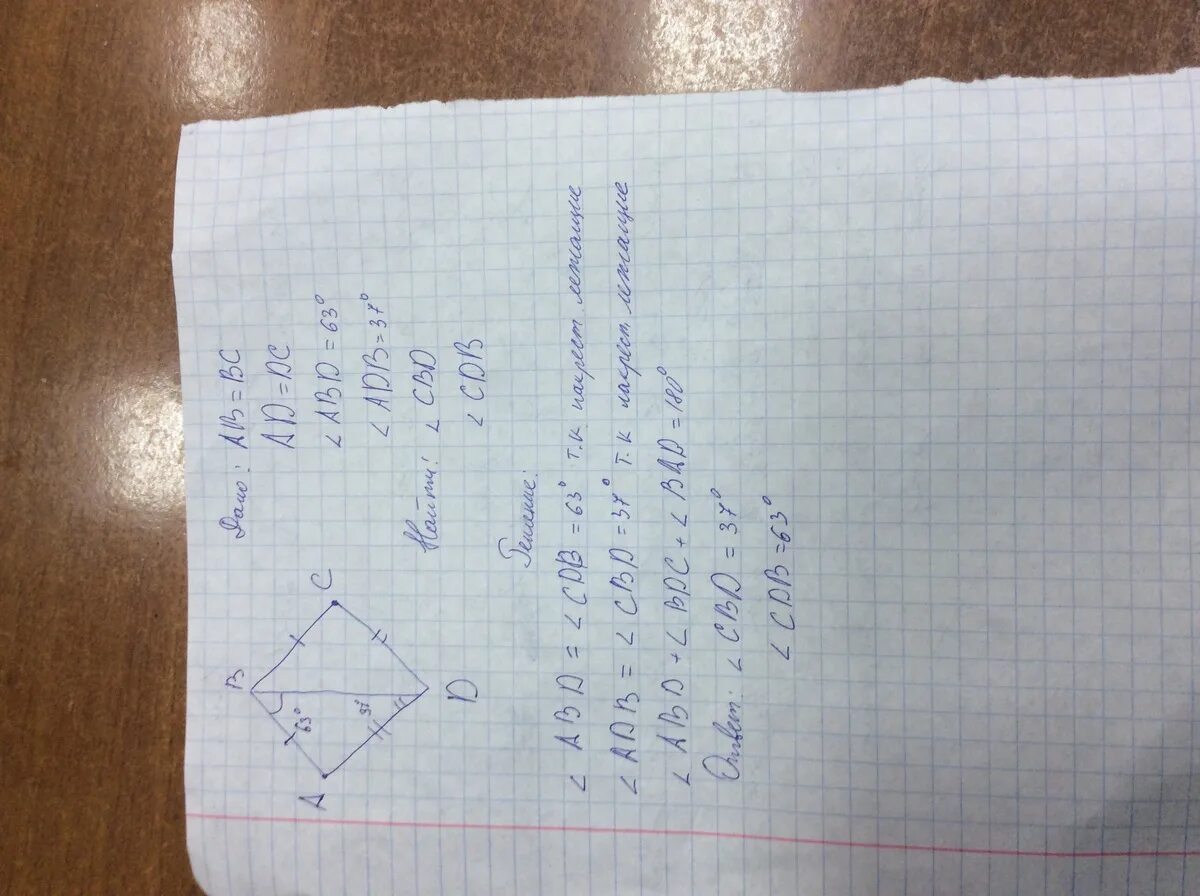 B
A
C
D
63°
37°
Дано: AB = BC
AD = DC
∠ ABD = 63°
∠ ADB = 37°
Найти: ∠ CBD
∠ CDB
Решение:
∠ ABD = ∠ CDB = 63° т.к накрест лежащие
∠ ADB = ∠ CBD = 37° т.к накрест лежащие
∠ ABD + ∠ BDC + ∠ BAD = 180°
Ответ: ∠ CBD = 37°
∠ CDB = 63°